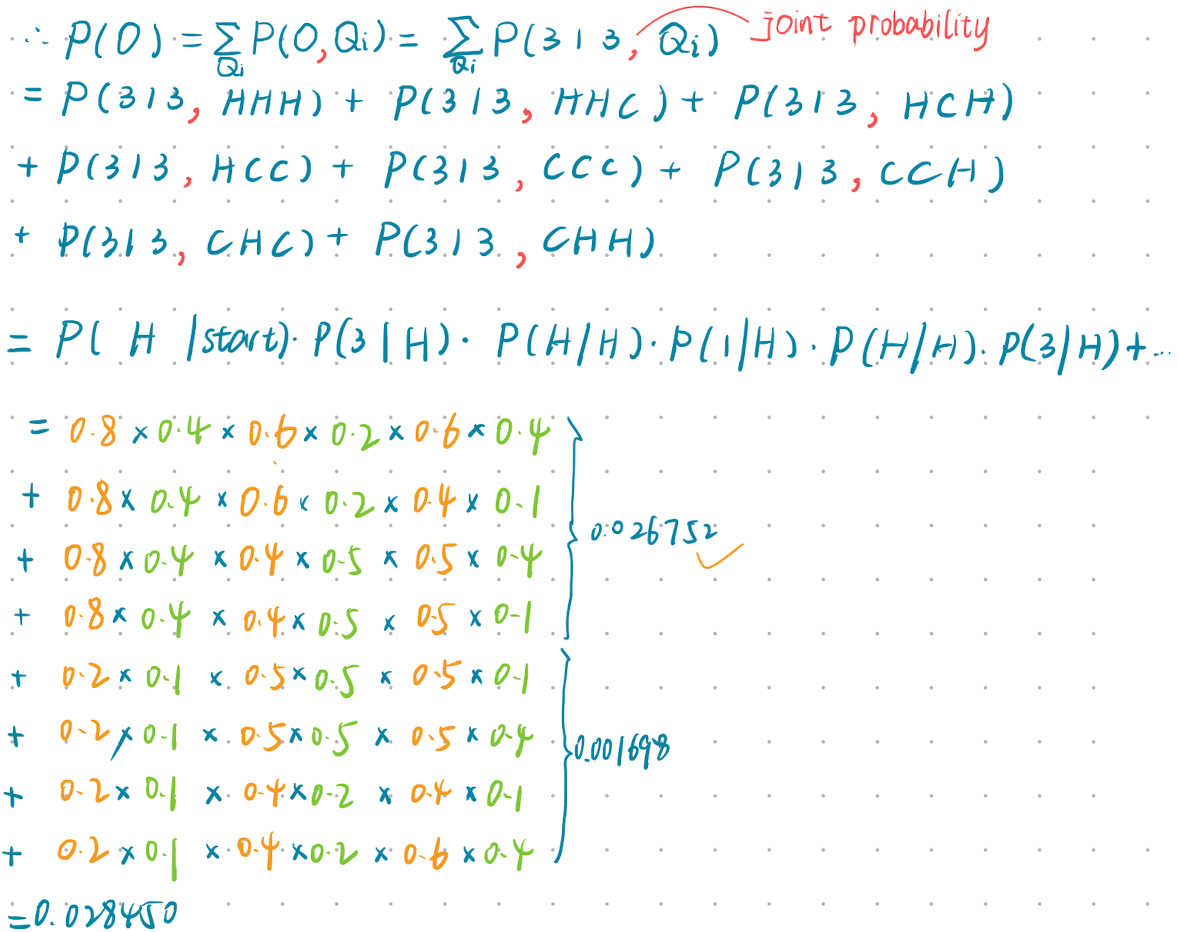 ∴ P(O) = ∑_{Qi} P(O, Qi) = ∑_{Qi} P(3 1 3, Qi) joint probability
= P(3 1 3, HHH) + P(3 1 3, HHC) + P(3 1 3, HCH)
+ P(3 1 3, HCC) + P(3 1 3, CCC) + P(3 1 3, CCH)
+ P(3 1 3, CHC) + P(3 1 3, CHH).
= P( H | start) · P(3 | H) · P(H | H) · P(1 | H) · P(H | H) · P(3 | H) + ...
= 0.8 × 0.4 × 0.6 × 0.2 × 0.6 × 0.4
+ 0.8 × 0.4 × 0.6 × 0.2 × 0.4 × 0.1
0.026752 ✓
+ 0.8 × 0.4 × 0.4 × 0.5 × 0.5 × 0.4
+ 0.8 × 0.4 × 0.4 × 0.5 × 0.5 × 0.1
+ 0.2 × 0.1 × 0.5 × 0.5 × 0.5 × 0.1
+ 0.2 × 0.1 × 0.5 × 0.5 × 0.5 × 0.4
0.001698
+ 0.2 × 0.1 × 0.4 × 0.2 × 0.4 × 0.1
+ 0.2 × 0.1 × 0.4 × 0.2 × 0.6 × 0.4
= 0.028450